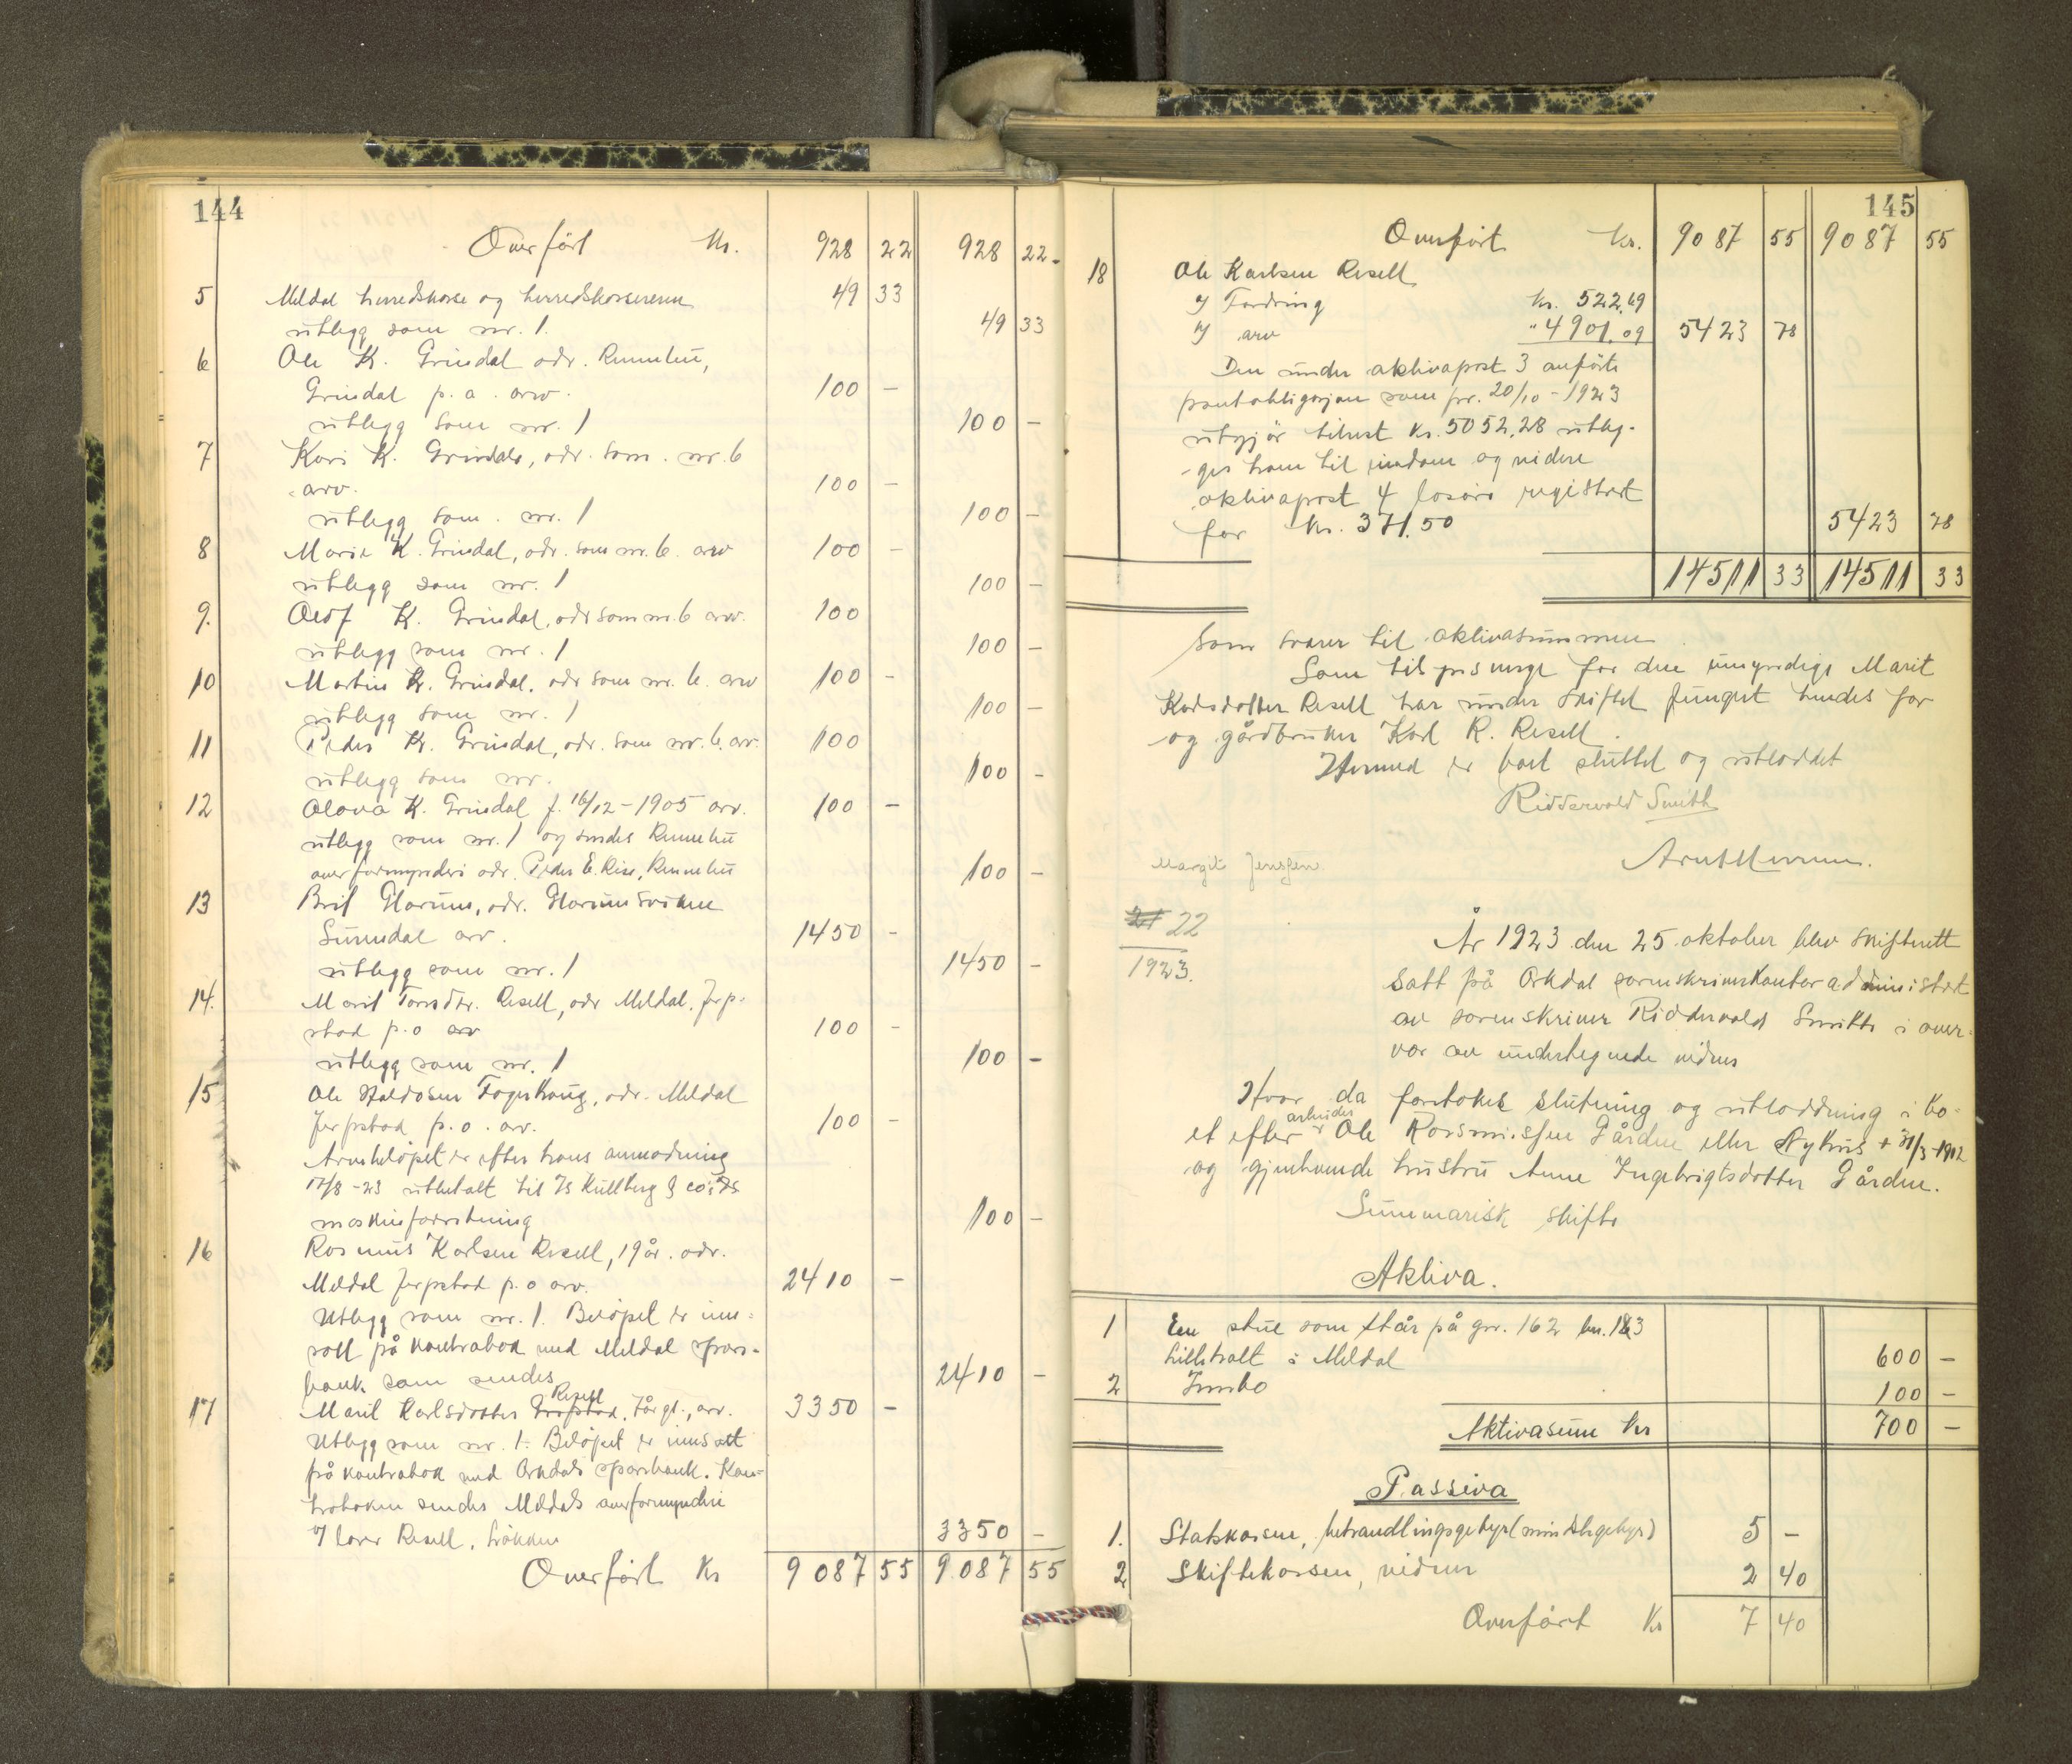 144
Overført Kr. 928 22 928 22.
5 Meldal herredskasse og herredskassereren 49 33
utlegg som nr. 1. 49 33
6 Ole K. Grindal adr. Rennebu,
Grindal p. a. arv. 100 -
utlegg som nr. 1 100 -
7 Kari K. Grindal, adr. som. nr. 6
arv. 100 -
utlegg som. nr. 1 100 -
8 Marie K. Grindal, adr. som nr. 6. arv 100 -
utlegg som nr. 1 100 -
9. Olof K. Grindal, adr som nr. 6 arv. 100
utlegg som nr. 1 100 -
10 Martin K. Grindal. adr som nr. 6. arv 100 -
utlegg som nr. 1 100 -
11 Peder K. Grindal, adr. som nr. 6. arv. 100
utlegg som nr. 100 -
12 Olava K. Grindal f. 16/12-1905 arv. 100 -
utlegg som nr. 1 og sendes Rennebu
overformynderi adr. Peder E. Rise, Rennebu 100 -
13 Brit Glærum, adr. Glærumsviken
Surndal arv. 1450 -
utlegg som nr. 1 1450 -
14. Marit Torsdtr. Resell, adr Meldal. Jerp-
stad p.o arv 100 -
utlegg som nr. 1 100 -
15 Ole Haldosen Fagerhaug, adr. Meldal
Jerpstad p.o. arv. 100 -
Arvebeløpet er efter hans anmodning
17/8-23 utbetalt til Is Kullberg & co's
maskinforretning 100 -
16 Rasmus Karlsen Resell, 19 år. adr.
Meldal Jerpstad p.o arv. 2410 -
Utlegg som nr. 1. Beløpet er inn-
satt på kontrabok med Meldal spare-
bank som sendes 2410 -
Resell
17 Marit Karlsdotter, år gl., arv. 3350 -
Utlegg som nr. 1. Beløpet er innsatt
på kontrabok med Orkdals sparebank. Kon-
traboken sendes Meldals overformynderi
v/ Lars Resell, Løkken 3350 -
Overført Kr 9087 55 9087 55
145
Overført Kr. 9087 55 9087 55
18 Ole Karlsen Resell
a/ Fordring Kr. 522,69
b/ arv " 4901.09 5423 78
Den under aktivapost 3 anførte
pantobligasjon som pr. 20/10-1923
utgjør tilrest Kr. 5052,28 utleg-
ges ham til eiendom og videre
aktivapost 4 løsøre registrert
for Kr. 371.50 5423 78
14511 33 14511 33
som svarer til aktivasummen
Som tilsynsverge for den umyndige Marit
Karlsdotter Resell har under skiftet fungert hendes far
og gårdbruker Karl R. Resell.
Hermed er boet sluttet og utloddet
Riddervold Smith
Margit Jenssen
21 22
1923.
År 1923 den 25. oktober blev skifterett
satt på Orkdal sorenskriverkontor administrert
av sorenskriver Riddervold Smith i over-
vær av undertegnede vidner
Hvor da foretokes slutning og utloddning i bo-
et efter arbeider Ole Rasmussen Gården eller Nyhus + 31/3-1912
og gjenlevende hustru Anne Ingebrigtsdotter Gården.
Summarisk skifte
Aktiva.
1 En stue som står på gnr. 162 bnr. 163
Lilletralt i Meldal 600 -
2 Innbo 100 -
Aktivasum Kr 700 -
Passiva
1. Statskassen, behandlingsgebyr (mindstegebyr) 5 -
2 Skiftekassen, vidner 2 40
Overført Kr 7 40